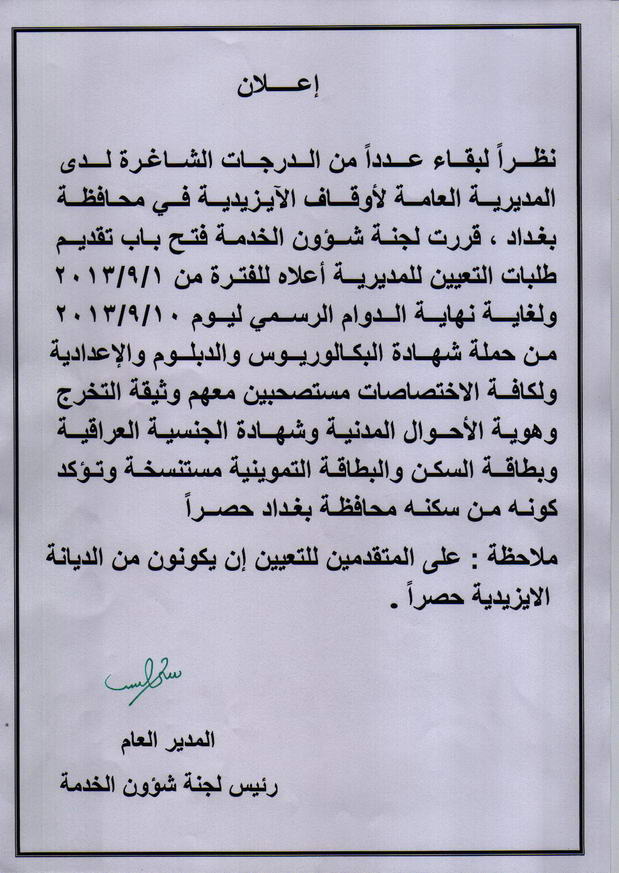 إعـــــلان
نظـــراً لبقـاء عـــدداً من الـدرجـات الشـاغـرة لــدى
المديريـة العامـة لأوقـاف الآيـزيديـة فـي محـافظـة
بغـداد ، قررت لجنـة شـؤون الخدمـة فتـح بـاب تقديـم
طلبات التعيين للمديريـة أعلاه للفترة من ٢٠١٣/٩/١
ولغايـة نهايـة الـدوام الرسـمي ليـوم ٢٠١٣/٩/١٠
مـن حملة شهـادة البكـالوريـوس والدبلـوم والإعدادية
ولكافـة الاختصاصات مستصحبين معهم وثيقة التخرج
وهوية الأحـوال المدنية وشهـادة الجنسـية العراقيـة
وبطاقـة السكـن والبطاقة التموينية مستنسخة وتـؤكد
كونـه مـن سكنـه محافظـة بغداد حصـراً
ملاحظة : على المتقدمين للتعيين إن يكونون من الديانة
الايزيدية حصراً .
المدير العام
رئيس لجنة شؤون الخدمة